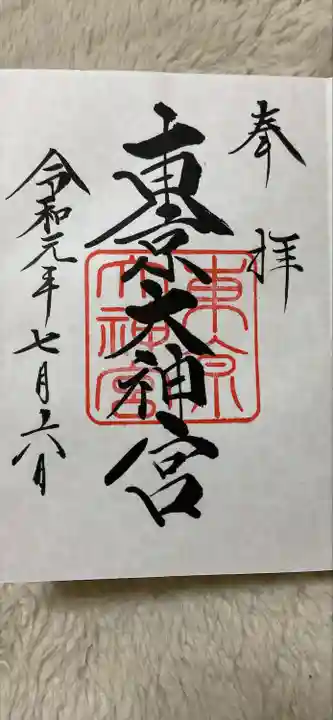 奉拝
東京大神宮
東京
大神宮
令和元年七月十六日